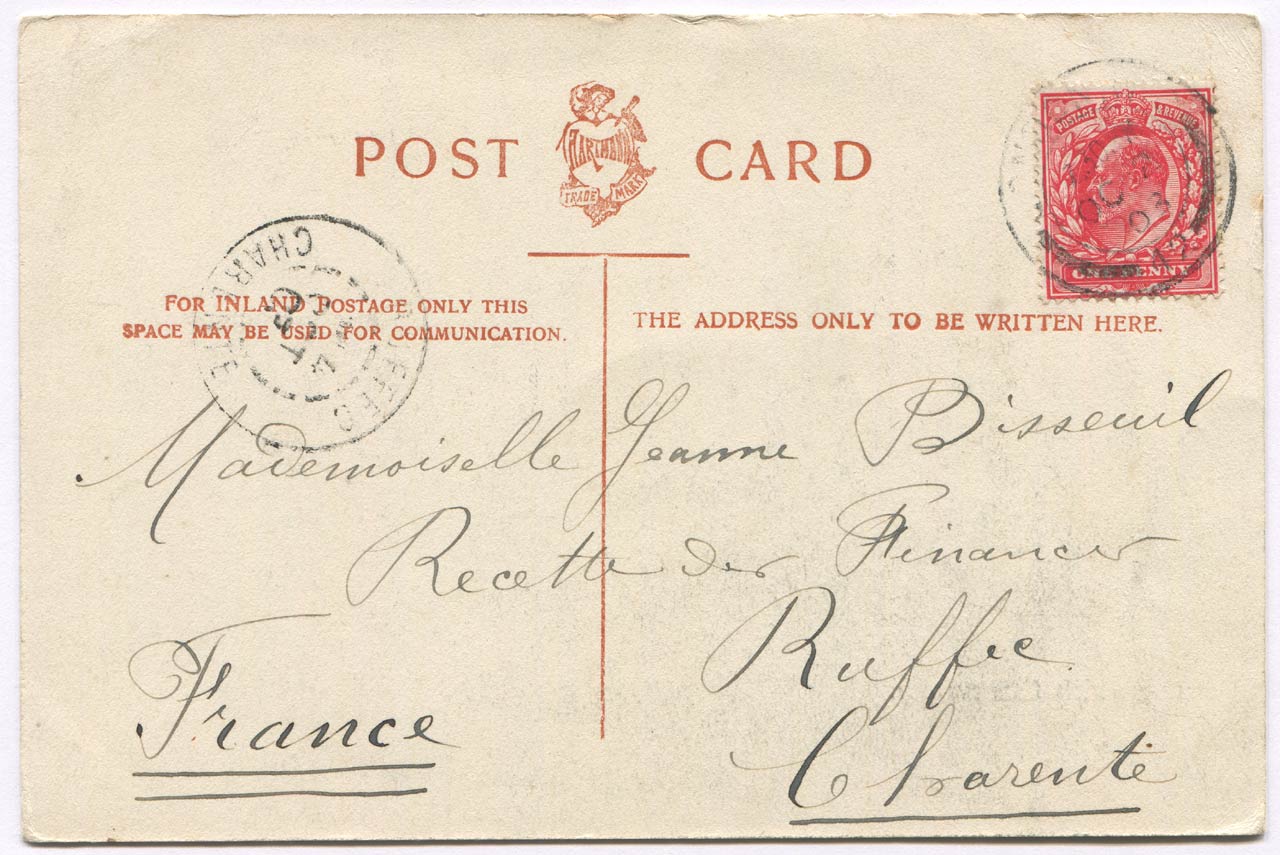 POST CARD
HARTMANN
TRADE MARK
POSTAGE & REVENUE
ONE PENNY
OC
03
CHARENTE
RUFFEC
4
OCT
03
FOR INLAND POSTAGE ONLY THIS
SPACE MAY BE USED FOR COMMUNICATION.
THE ADDRESS ONLY TO BE WRITTEN HERE.
Mademoiselle Jeanne Bisseuil
Recette des Finances
Ruffec
France
Charente